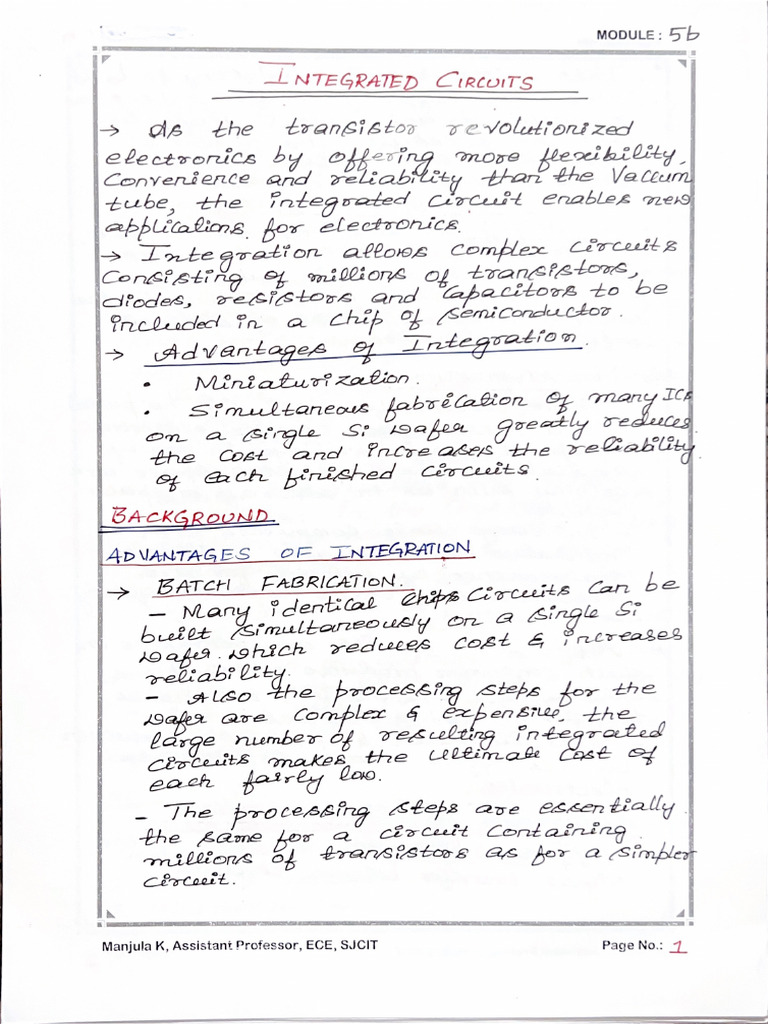 MODULE : 5b
INTEGRATED CIRCUITS
→ As the transistor revolutionized
electronics by offering more flexibility,
Convenience and reliability than the Vaccum
tube, the integrated circuit enables new
applications for electronics.
→ Integration allows complex circuits
Consisting of millions of transistors,
diodes, resistors and Capacitors to be
included in a chip of Semiconductor.
→ Advantages of Integration.
• Miniaturization.
• Simultaneous fabrication of many ICs
on a single Si wafer greatly reduces
the cost and increases the reliability
of each finished circuits.
BACKGROUND
ADVANTAGES OF INTEGRATION
→ BATCH FABRICATION.
– Many identical Chips Circuits can be
built simultaneously on a single Si
wafer. which reduces cost & increases
reliability.
– Also the processing steps for the
wafer are complex & expensive, the
large number of resulting integrated
circuits makes the ultimate cost of
each fairly low.
– The processing steps are essentially
the same for a circuit containing
millions of transistors as for a simpler
circuit.
Manjula K, Assistant Professor, ECE, SJCIT
Page No.: 1